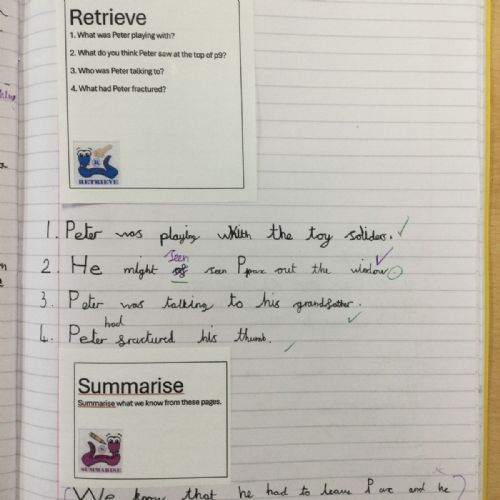 Retrieve
1. What was Peter playing with?
2. What do you think Peter saw at the top of p9?
3. Who was Peter talking to?
4. What had Peter fractured?
RETRIEVE
1. Peter was playing with the toy soliders.
seen
2. He might of seen out the window.
3. Peter was talking to his grandfather.
had
4. Peter fractured his thumb.
Summarise
Summarise what we know from these pages.
SUMMARISE
(We know that he had to leave and he